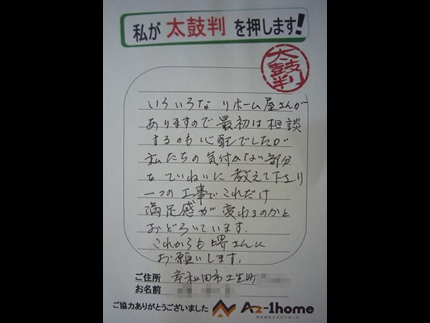 私が 太鼓判 を押します!
太鼓判
いろいろなリホーム屋さんが
ありますので最初は相談
するのも心配でしたが
私たちの気付かない部分
をていねいに教えて下さり
一つの工事でこれだけ
満足感が変わるのかと
おどろいています。
これからも堺さんに
お願いします。
ご住所 岸和田市土生町
お名前
ご協力ありがとうございました Az-1home